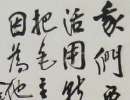 我們
活用
把毛主
因為他